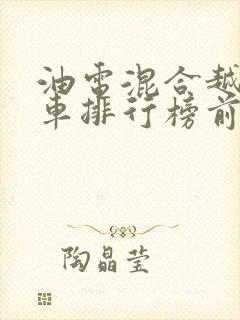 油电混合越
车排行榜前
陶晶莹